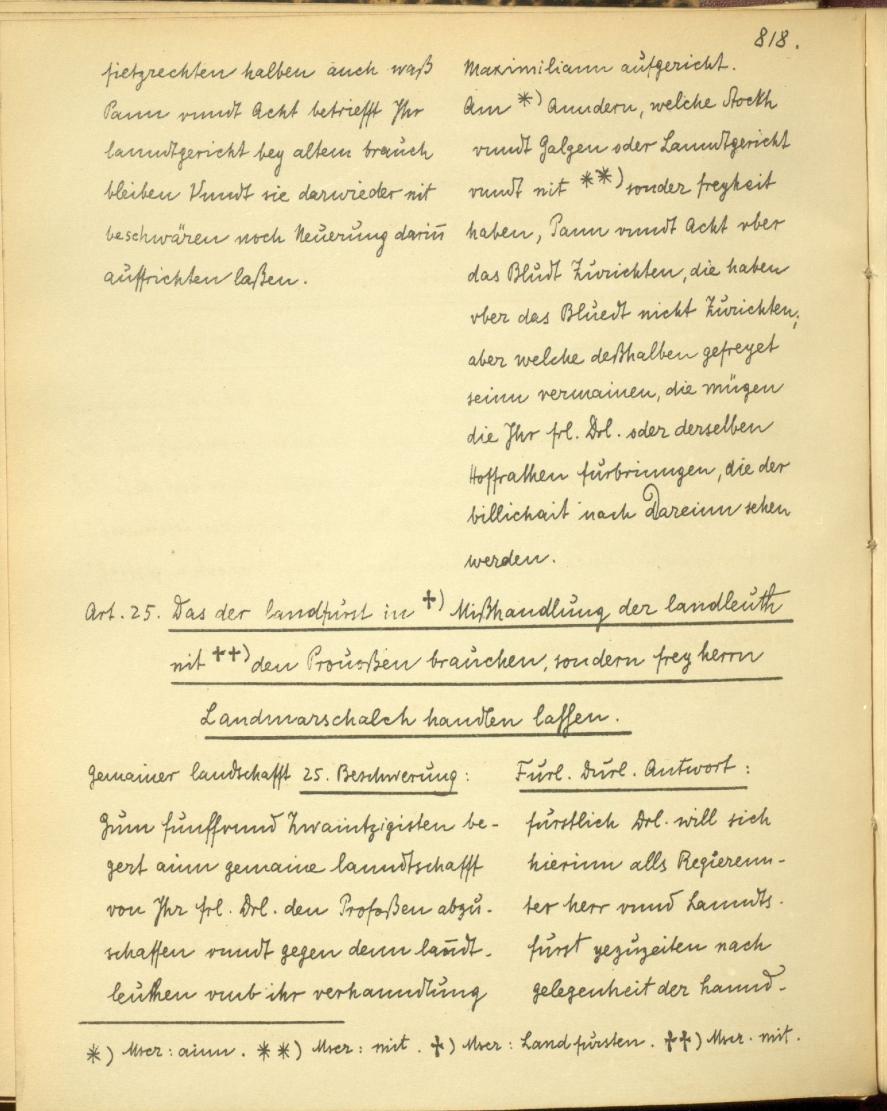 818.
sietzrechten halben auch waß
Pann vnndt Acht betriefft Ihr
lanndtgericht bey altem brauch
bleiben Vnndt sie darwieder nit
beschwären noch Neuerung darin̄
auffrichten laßen.
Maximiliann aufgericht.
Am *) Anndern, welche Stockh
vnndt Galgen oder Lanndtgericht
vnndt nit **) sonder freyheit
haben, Pann vnndt Acht vber
das Bludt Zurichten, die haben
vber das Bluedt nicht Zurichten,
aber welche deßhalben gefreyet
seinn vermainen, die mügen
die Ihr frl. Drl. oder derselben
Hoffrathen furbrinngen, die der
billichait nach Dareinn sehen
werden.
Art. 25. Das der landfürst in +) Mißhandlung der landleuth
nit ++) den Prouoßen brauchen, sondern frey herrn
Landmarschalch handlen lassen.
Gemainer landschafft 25. Beschwerung:
Zum funffvnnd Zwaintzigisten be-
gert ainn gemaine lanndtschafft
von Ihr frl. Drl. den Profoßen abzu-
schaffen vnndt gegen denn lan̄dt-
leuthen vmb ihr verhanndlung
Fürl. Durl. Antwort:
fürstlich Drl. will sich
hierinn alls Regierenn-
ter herr vnnd Lanndts-
fürst yezuzeiten nach
gelegenheit der hannd-
*) Mscr: ainn. **) Mscr: mit. +) Mscr: Landfürsten. ++) Mscr. mit.